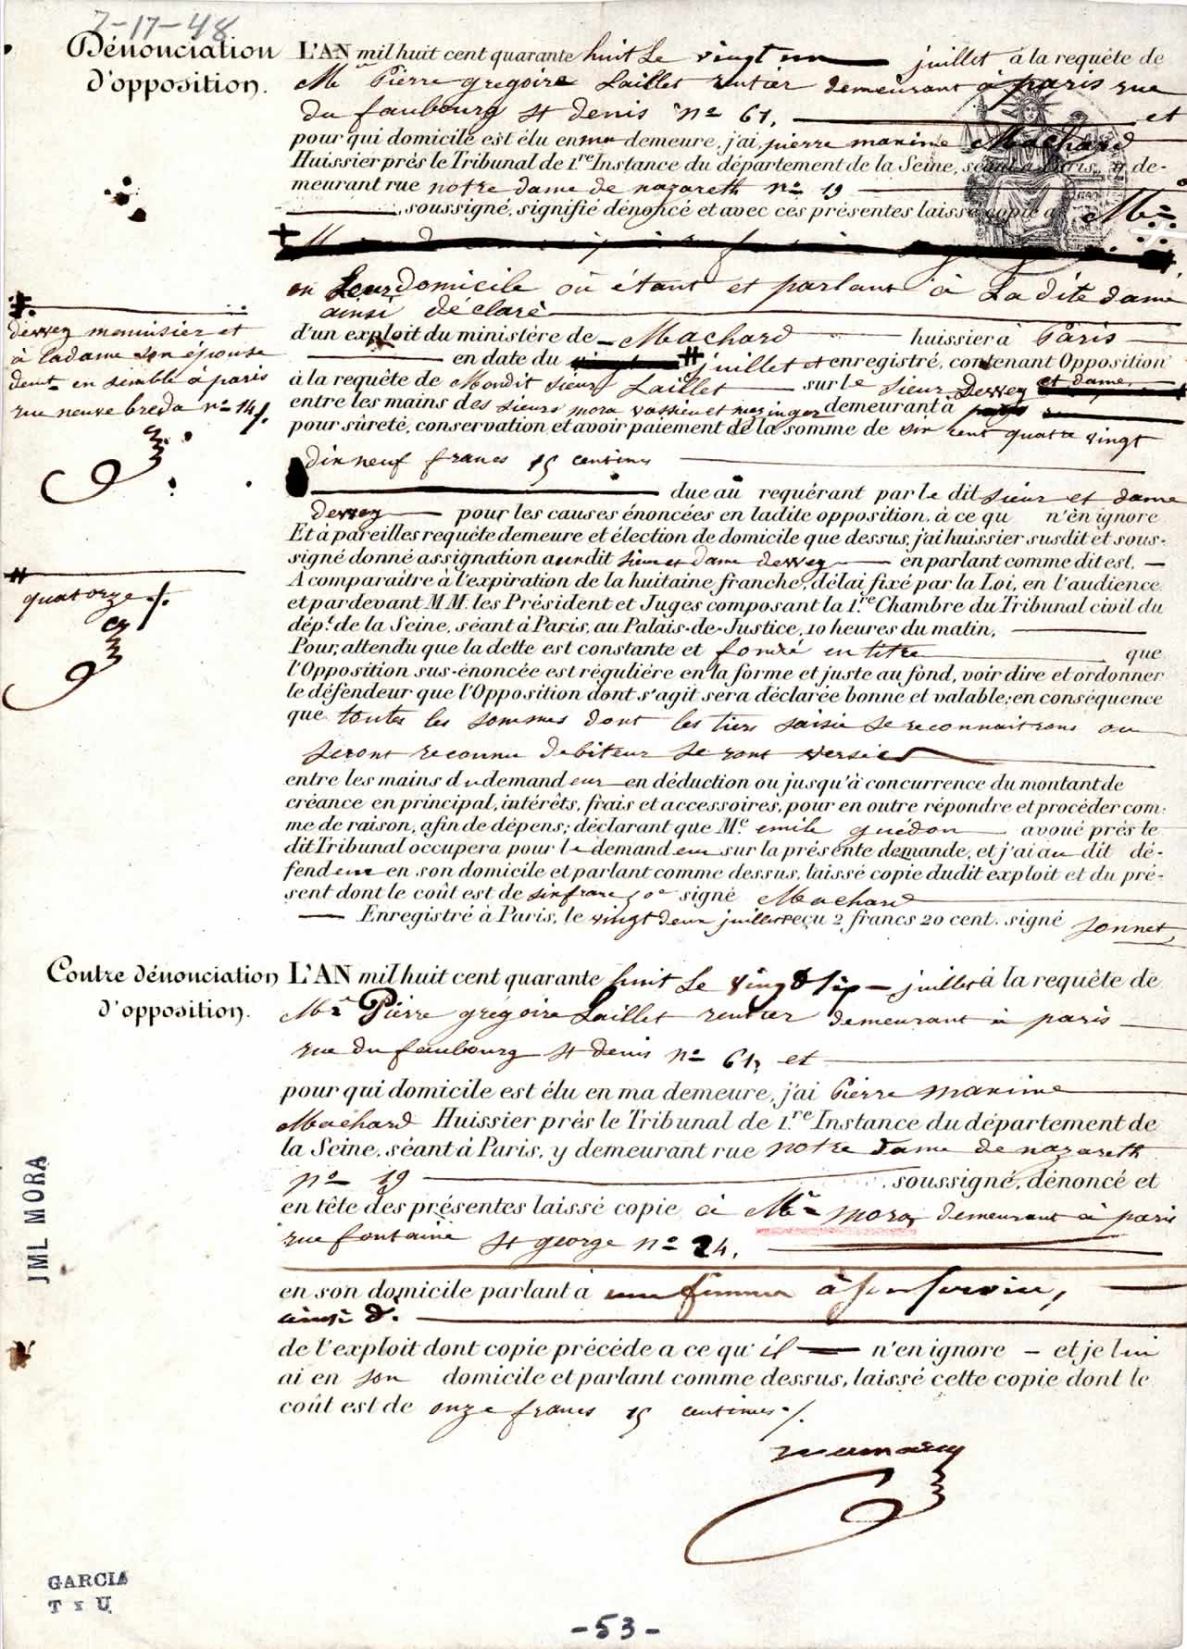 7-17-48
Dénonciation
d'opposition.
L'AN mil huit cent quarante huit Le vingt un juillet à la requête de
Mr Pierre gregoire Laillet rentier demeurant à paris rue
du faubourg st denis no 61, et
pour qui domicile est élu en ma demeure, j'ai, pierre maxime Machard
Huissier près le Tribunal de 1.re Instance du département de la Seine, séant à Paris, y de-
meurant rue notre dame de nazareth no 19
soussigné, signifié dénoncé et avec ces présentes laissé copie à Mr
en Leur domicile où étant et parlant à La dite dame
ainsi déclaré
d'un exploit du ministère de Machard huissier à Paris
en date du # juillet et enregistré, contenant Opposition
à la requête de Mondit sieur Laillet sur le sieur Dervey et dame
entre les mains des sieurs mora vassieu et mezinger demeurant à
pour sûreté, conservation et avoir paiement de la somme de six cent quatre vingt
dix neuf francs 15 centimes
due au requérant par le dit sieur et dame
dervey pour les causes énoncées en ladite opposition, à ce qu n'en ignore
Et à pareilles requête demeure et élection de domicile que dessus, j'ai huissier susdit et sous-
signé donné assignation audit sieur et dame dervey en parlant comme dit est.
A comparaître à l'expiration de la huitaine franche, délai fixé par la Loi, en l'audience
et pardevant MM. les Président et Juges composant la 1.re Chambre du Tribunal civil du
dép.t de la Seine, séant à Paris, au Palais-de-Justice, 10 heures du matin,
Pour, attendu que la dette est constante et fondé en titre que
l'Opposition sus-énoncée est régulière en la forme et juste au fond, voir dire et ordonner
le défendeur que l'Opposition dont s'agit sera déclarée bonne et valable; en conséquence
que toutes les sommes dont les tiers saisie se reconnaitrons ou
seront reconnu debiteur seront versées
entre les mains du demandeur en déduction ou jusqu'à concurrence du montant de
créance en principal, intérêts, frais et accessoires, pour en outre répondre et procéder com-
me de raison, afin de dépens; déclarant que M.e emile guédon avoué près le
dit Tribunal occupera pour le demandeur sur la présente demande, et j'ai au dit dé-
fendeur en son domicile et parlant comme dessus, laissé copie dudit exploit et du pré-
sent dont le coût est de six franc 50c signé Machard
Enregistré à Paris, le vingt deux juillet reçu 2 francs 20 cent. signé Jonnet
#
dervey menuisier et
à la dame son épouse
demt ensemble à paris
rue neuve breda no 14
#
quatorze
Contre dénonciation
d'opposition.
L'AN mil huit cent quarante huit Le vingt six juillet à la requête de
Mr Pierre grégoire Laillet rentier demeurant à paris
rue du faubourg st denis no 61, et
pour qui domicile est élu en ma demeure, j'ai Pierre maxime
Machard Huissier près le Tribunal de 1.re Instance du département de
la Seine, séant à Paris, y demeurant rue notre dame de nazareth
no 19 soussigné, dénoncé et
en tête des présentes laissé copie à Mr mora demeurant à paris
rue fontaine st george no 24.
en son domicile parlant à une femme à son service,
ainsi d.
de l'exploit dont copie précède a ce qu'il n'en ignore - et je lui
ai en son domicile et parlant comme dessus, laissé cette copie dont le
coût est de onze francs 15 centimes
JML MORA
GARCIA
T x U
-53-